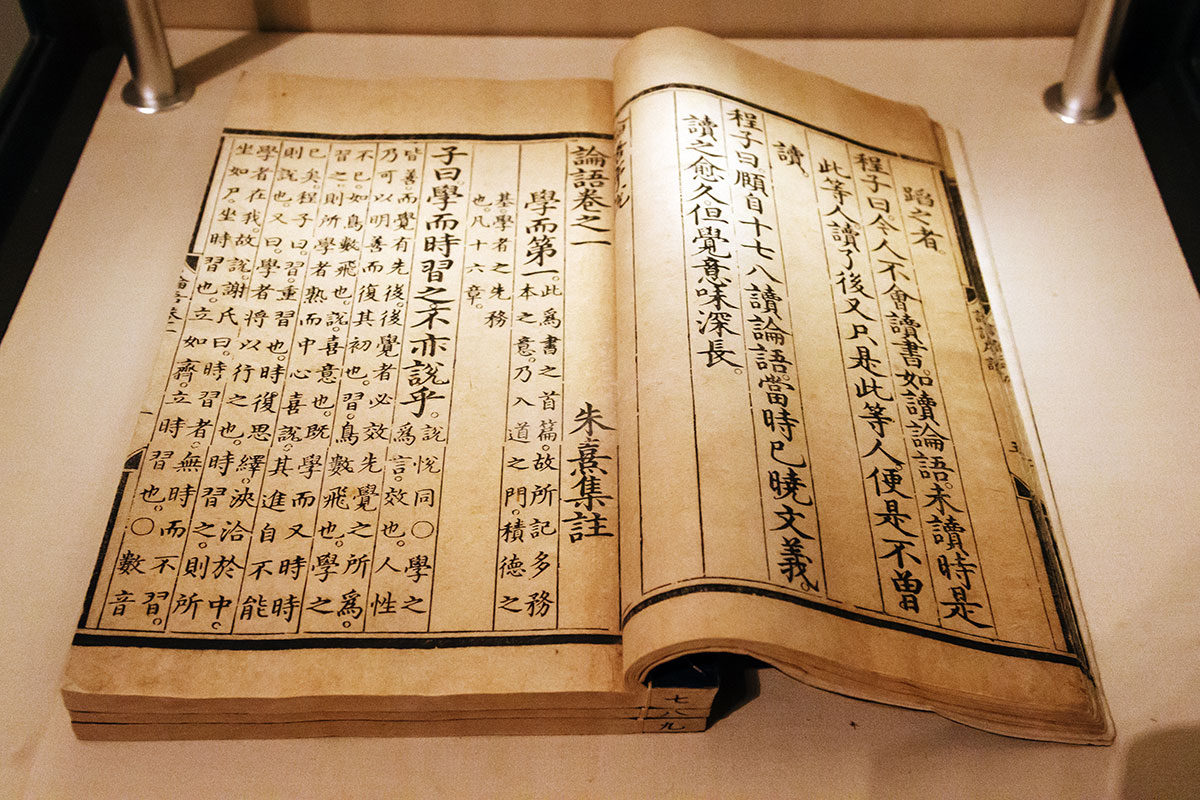 蹈之者。
程子曰。今人不會讀書。如讀論語。未讀時是
此等人。讀了後又只是此等人。便是不曾
讀。
程子曰。頤自十七八讀論語。當時已曉文義。
讀之愈久。但覺意味深長。
論語卷之一 朱熹集註
學而第一。此爲書之首篇。故所記多務
本之意。乃入道之門。積德之
基。學者之先務
也。凡十六章。
子曰。學而時習之。不亦說乎。說悅同○學之
爲言。效也。人性
皆善。而覺有先後。後覺者必效先覺之所爲。
乃可以明善而復其初也。習。鳥數飛也。學之
不已。如鳥數飛也。說。喜意也。既學而又時時
習之。則所學者熟。而中心喜說。其進自不能
已矣。程子曰。習。重習也。時復思繹。浹洽於中。
則說也。又曰。學者將以行之也。時習之。則所
學者在我。故說。謝氏曰。時習者。無時而不習。
坐如尸。坐時習也。立如齊。立時習也。○數音
七
八
九